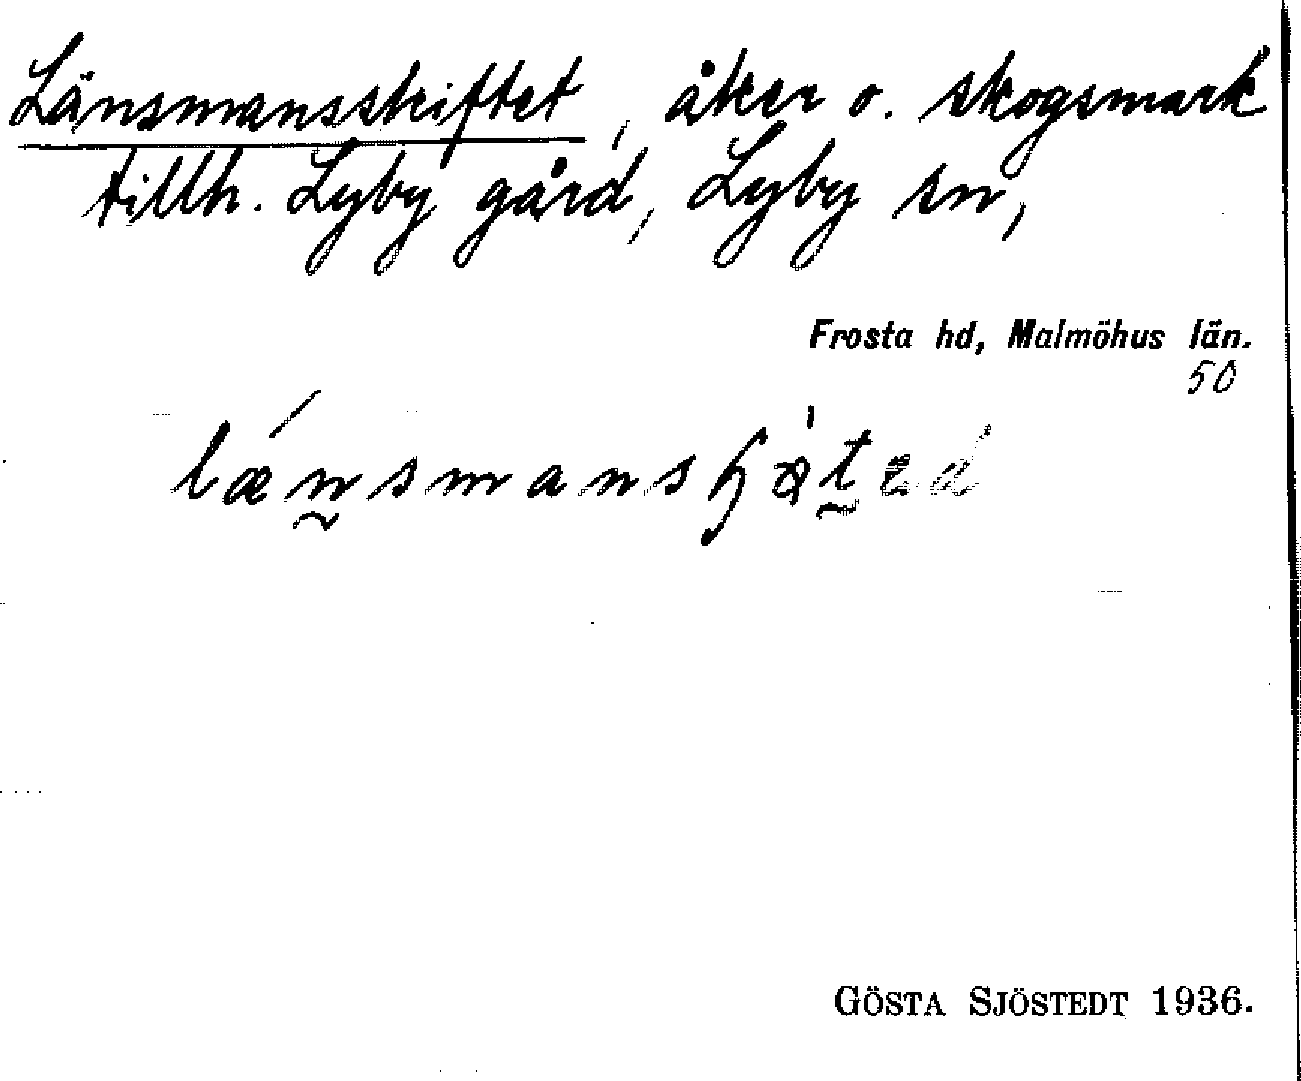 Länsmansskiftet, åker o. skogsmark
tillh. Lyby gård, Lyby sn,
Frosta hd, Malmöhus län.
50
GÖSTA SJÖSTEDT 1936.